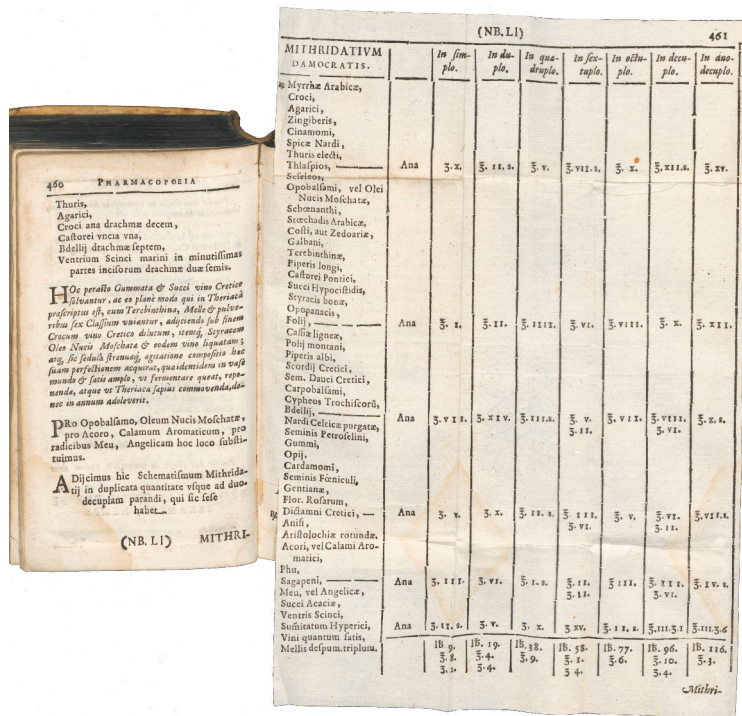 460 PHARMACOPOEIA
Thuris,
Agarici,
Croci ana drachmæ decem,
Castorei vncia vna,
Bdellij drachmæ septem,
Ventrium Scinci marini in minutissimas
partes incisorum drachmæ duæ semis.
HOc peracto Gummata & Succi vino Cretico
solvantur, ac eo planè modo qui in Theriaca
præscriptus est, cum Terebinthina, Melle & pulve-
ribus sex Classium vniantur, adijciendo sub finem
Crocum vino Cretico dilutum, itemq, Styracem
Oleo Nucis Moschatæ & eodem vino liquatam;
atq, sic sedulâ strenuaq, agitatione compositio hac
suam perfectionem acquirat, qua identidem in vase
mundo & satis amplo, vt fermentare queat, repo-
nenda, atque vt Theriaca sæpius commovenda, do-
nec in annum adoleverit.
PRo Opobalsamo, Oleum Nucis Moschatæ,
pro Acoro, Calamum Aromaticum, pro
radicibus Meu, Angelicam hoc loco substi-
tuimus.
ADijcimus hic Schematismum Mithrida-
tij in duplicata quantitate vsque ad duo-
decuplam parandi, qui sic sese
habet.
(NB. LI) MITHRI-
(NB. LI) 461
MITHRIDATIVM DAMOCRATIS. In sim-plo. In du-plo. In qua-druplo. In sex-tuplo. In octu-plo. In decu-plo. In duo-decuplo.
* Myrrhæ Arabicæ,
Croci,
Agarici,
Zingiberis,
Cinamomi,
Spicæ Nardi,
Thuris electi,
Thlaspios, Ana ʒ. x. ℥. II. s. ℥. v. ℥. VII. s. ℥. x. ℥. XII. s. ℥. xv.
Seseleos,
Opobalsami, vel Olei
Nucis Moschatæ,
Schœnanthi,
Stœchadis Arabicæ,
Costi, aut Zedoariæ,
Galbani,
Terebinthinæ,
Piperis longi,
Castorei Pontici,
Succi Hypocistidis,
Styracis bonæ,
Opopanacis,
Folij, Ana ℥. I. ℥. II. ℥. IIII. ℥. VI. ℥. VIII. ℥. x. ℥. XII.
Cassiæ ligneæ,
Polij montani,
Piperis albi,
Scordij Cretici,
Sem. Dauci Cretici,
Carpobalsami,
Cypheos Trochiscorũ,
Bdellij, Ana ʒ. VII. ʒ. XIV. ℥. III. s. ℥. v. ʒ. II. ℥. VII. ℥. VIII. ʒ. VI. ℥. x. s.
Nardi Celticæ purgatæ,
Seminis Petroselini,
Gummi,
Opij,
Cardamomi,
Seminis Fœniculi,
Gentianæ,
Flor. Rosarum,
Dictamni Cretici, Ana ʒ. v. ʒ. x. ℥. II. s. ℥. III. ʒ. VI. ℥. v. ℥. VI. ʒ. II. ℥. VII. s.
Anisi,
Aristolochiæ rotundæ,
Acori, vel Calami Aro-
matici,
Phu,
Sagapeni, Ana ʒ. III. ʒ. VI. ℥. I. s. ℥. II. ʒ. II. ℥. III. ℥. III. ʒ. VI. ℥. IV. s.
Meu, vel Angelicæ,
Succi Acaciæ,
Ventris Scinci,
Sum̃itatum Hyperici, Ana ʒ. II. s. ʒ. v. ʒ. x. ʒ. xv. ℥. II. s. ℥. III. ʒ. I ℥. III. ʒ. 6
Vini quantum satis,
Mellis despum. triplum. ℔. 9. ℥. 8. ʒ. 2. ℔. 19. ℥. 4. ʒ. 4. ℔. 38. ℥. 9. ℔. 58. ℥. 1. ʒ 4. ℔. 77. ℥. 6. ℔. 96. ℥. 10. ʒ. 4. ℔. 116. ℥. 3.
Mithri-